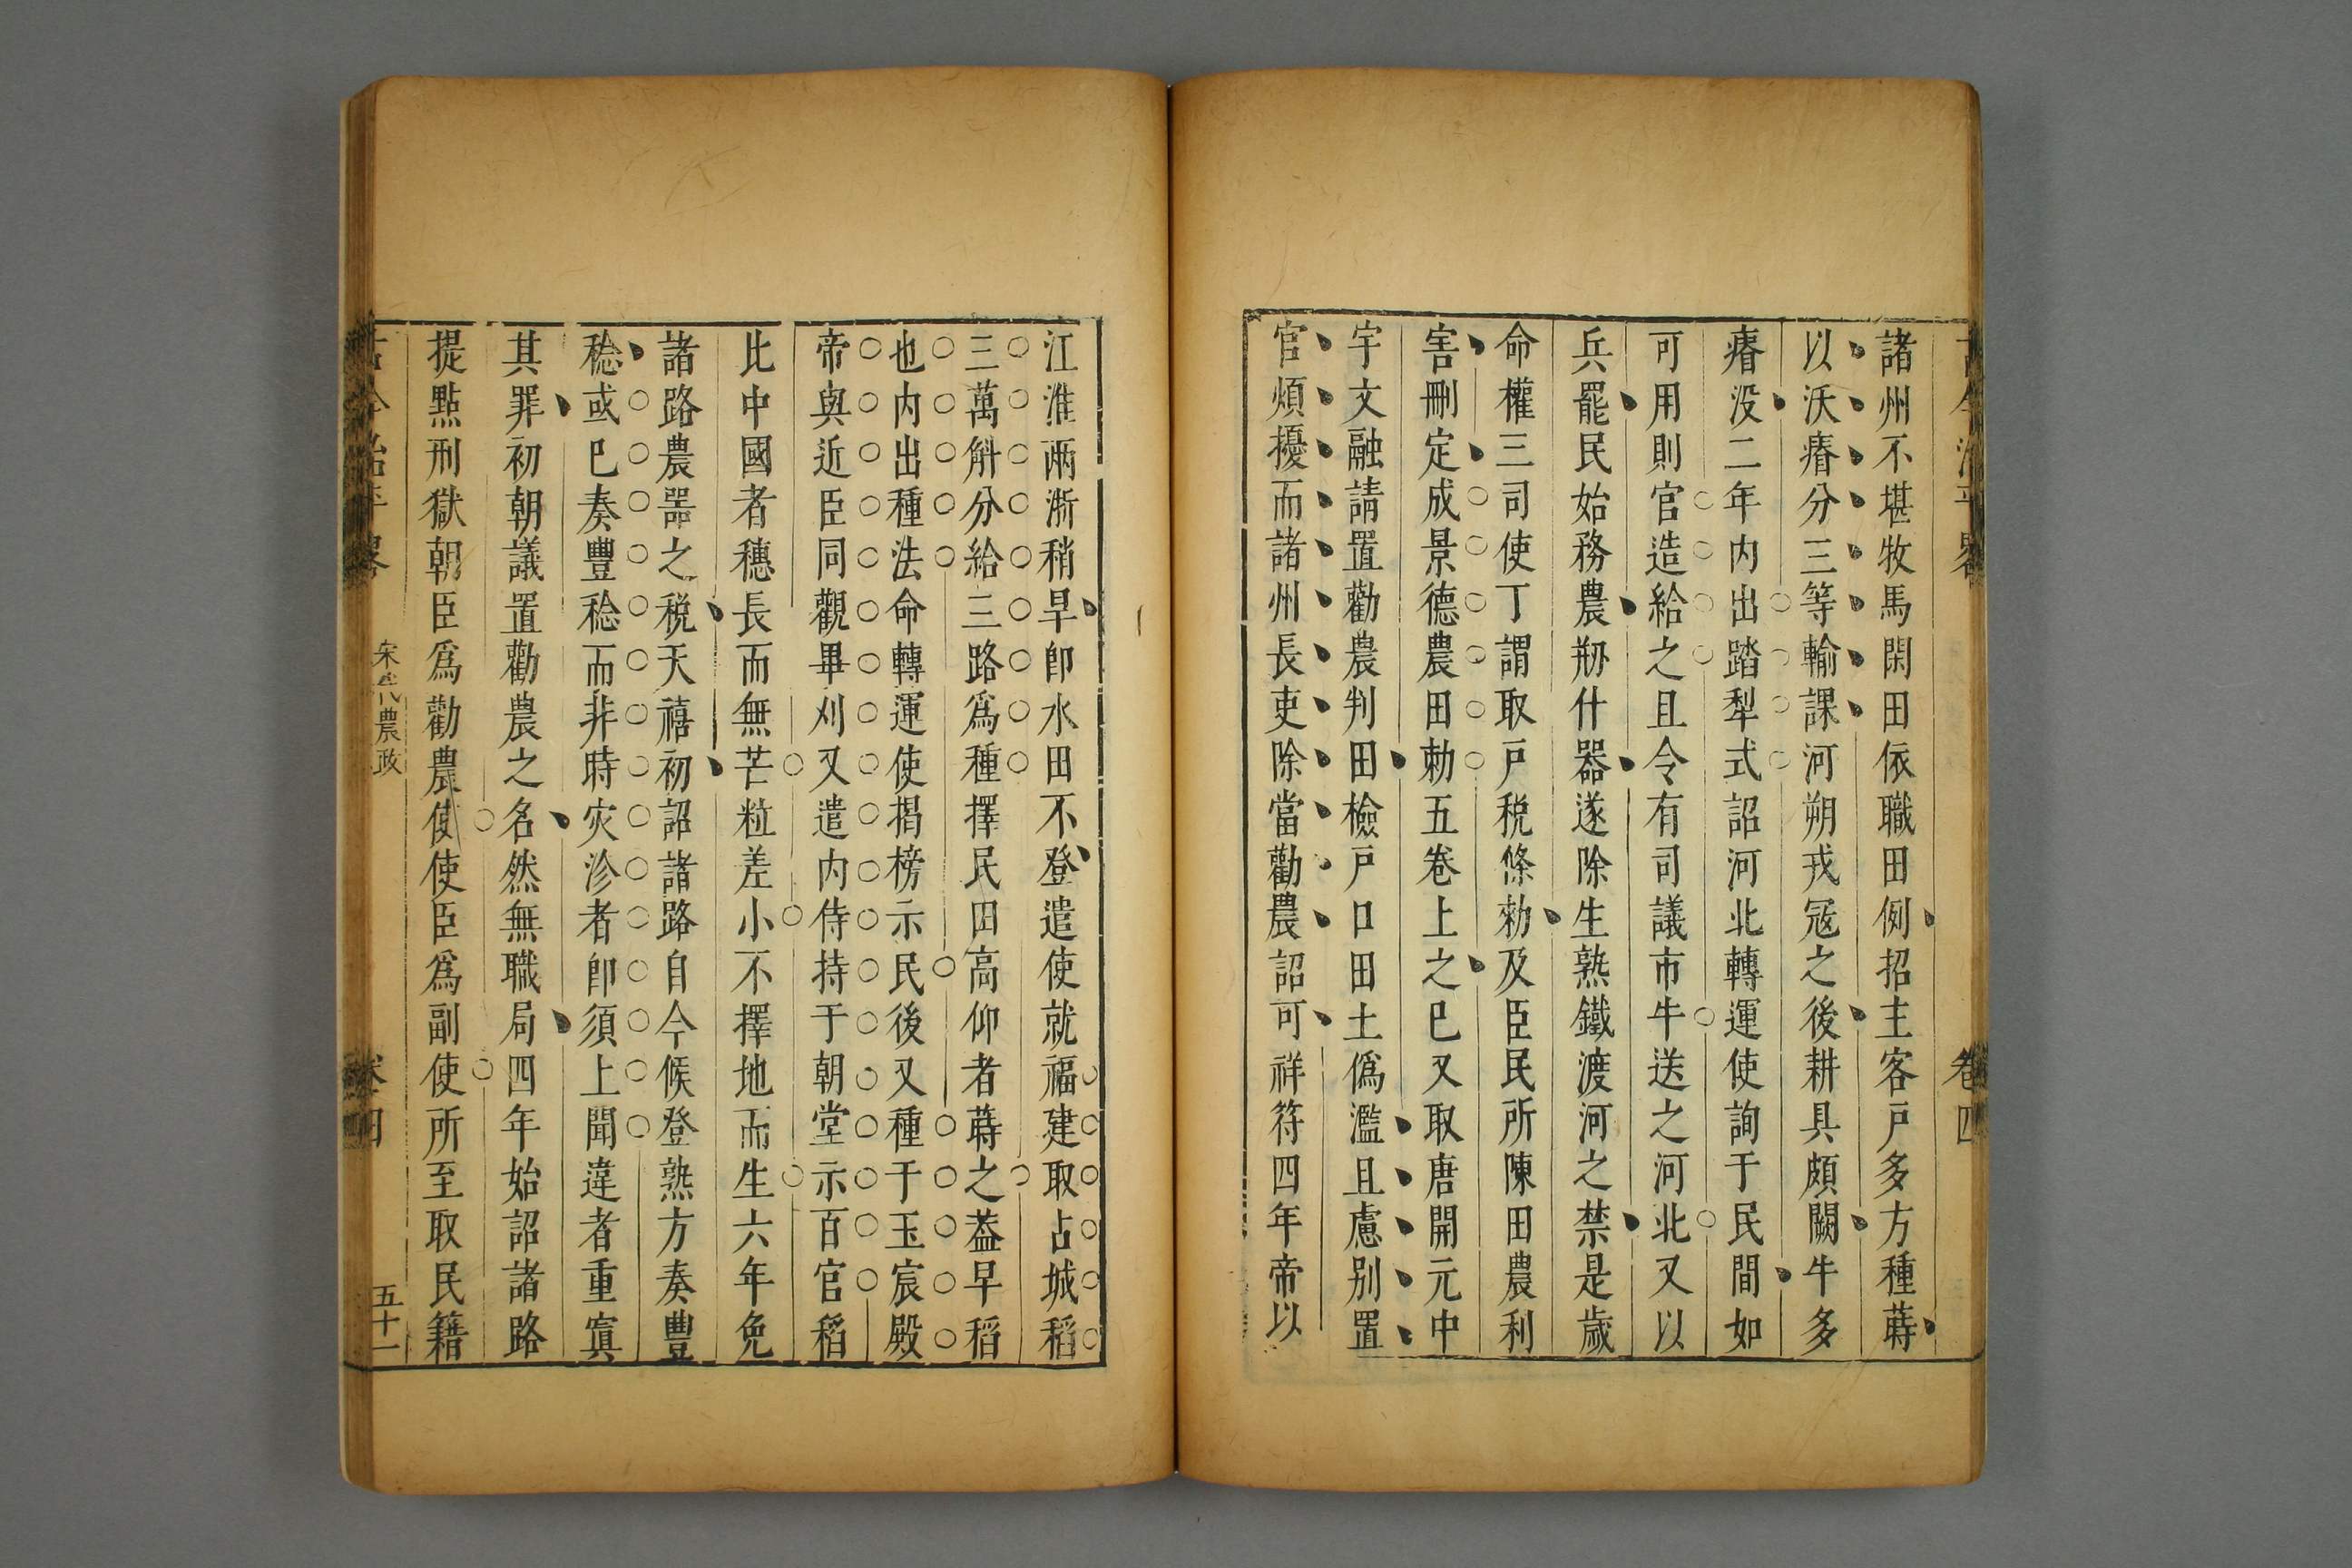 古今治平畧 卷四
諸州不堪牧馬閑田依職田例招主客戶多方種蒔
以沃瘠分三等輸課河朔戎冦之後耕具頗闕牛多
瘠没二年内出踏犁式詔河北轉運使詢于民間如
可用則官造給之且令有司議市牛送之河北又以
兵罷民始務農剏什器遂除生熟鐵渡河之禁是歲
命權三司使丁謂取戸稅條勑及臣民所陳田農利
害刪定成景德農田勑五卷上之巳又取唐開元中
宇文融請置勸農判田檢戸口田土僞濫且慮别置
官煩擾而諸州長吏除當勸農詔可祥符四年帝以
江淮兩浙稍旱卽水田不登遣使就福建取占城稻
三萬斛分給三路爲種擇民田高仰者蒔之葢早稻
也内出種法命轉運使揭榜示民後又種于玉宸殿
帝與近臣同觀畢刈又遣内侍持于朝堂示百官稻
比中國者穗長而無芒粒差小不擇地而生六年免
諸路農噐之稅天禧初詔諸路自今候登熟方奏豐
稔或巳奏豐稔而非時灾沴者卽須上聞違者重寘
其罪初朝議置勸農之名然無職局四年始詔諸路
提點刑獄朝臣爲勸農使使臣爲副使所至取民籍
古今治平畧 宋代農政 卷四 五十一